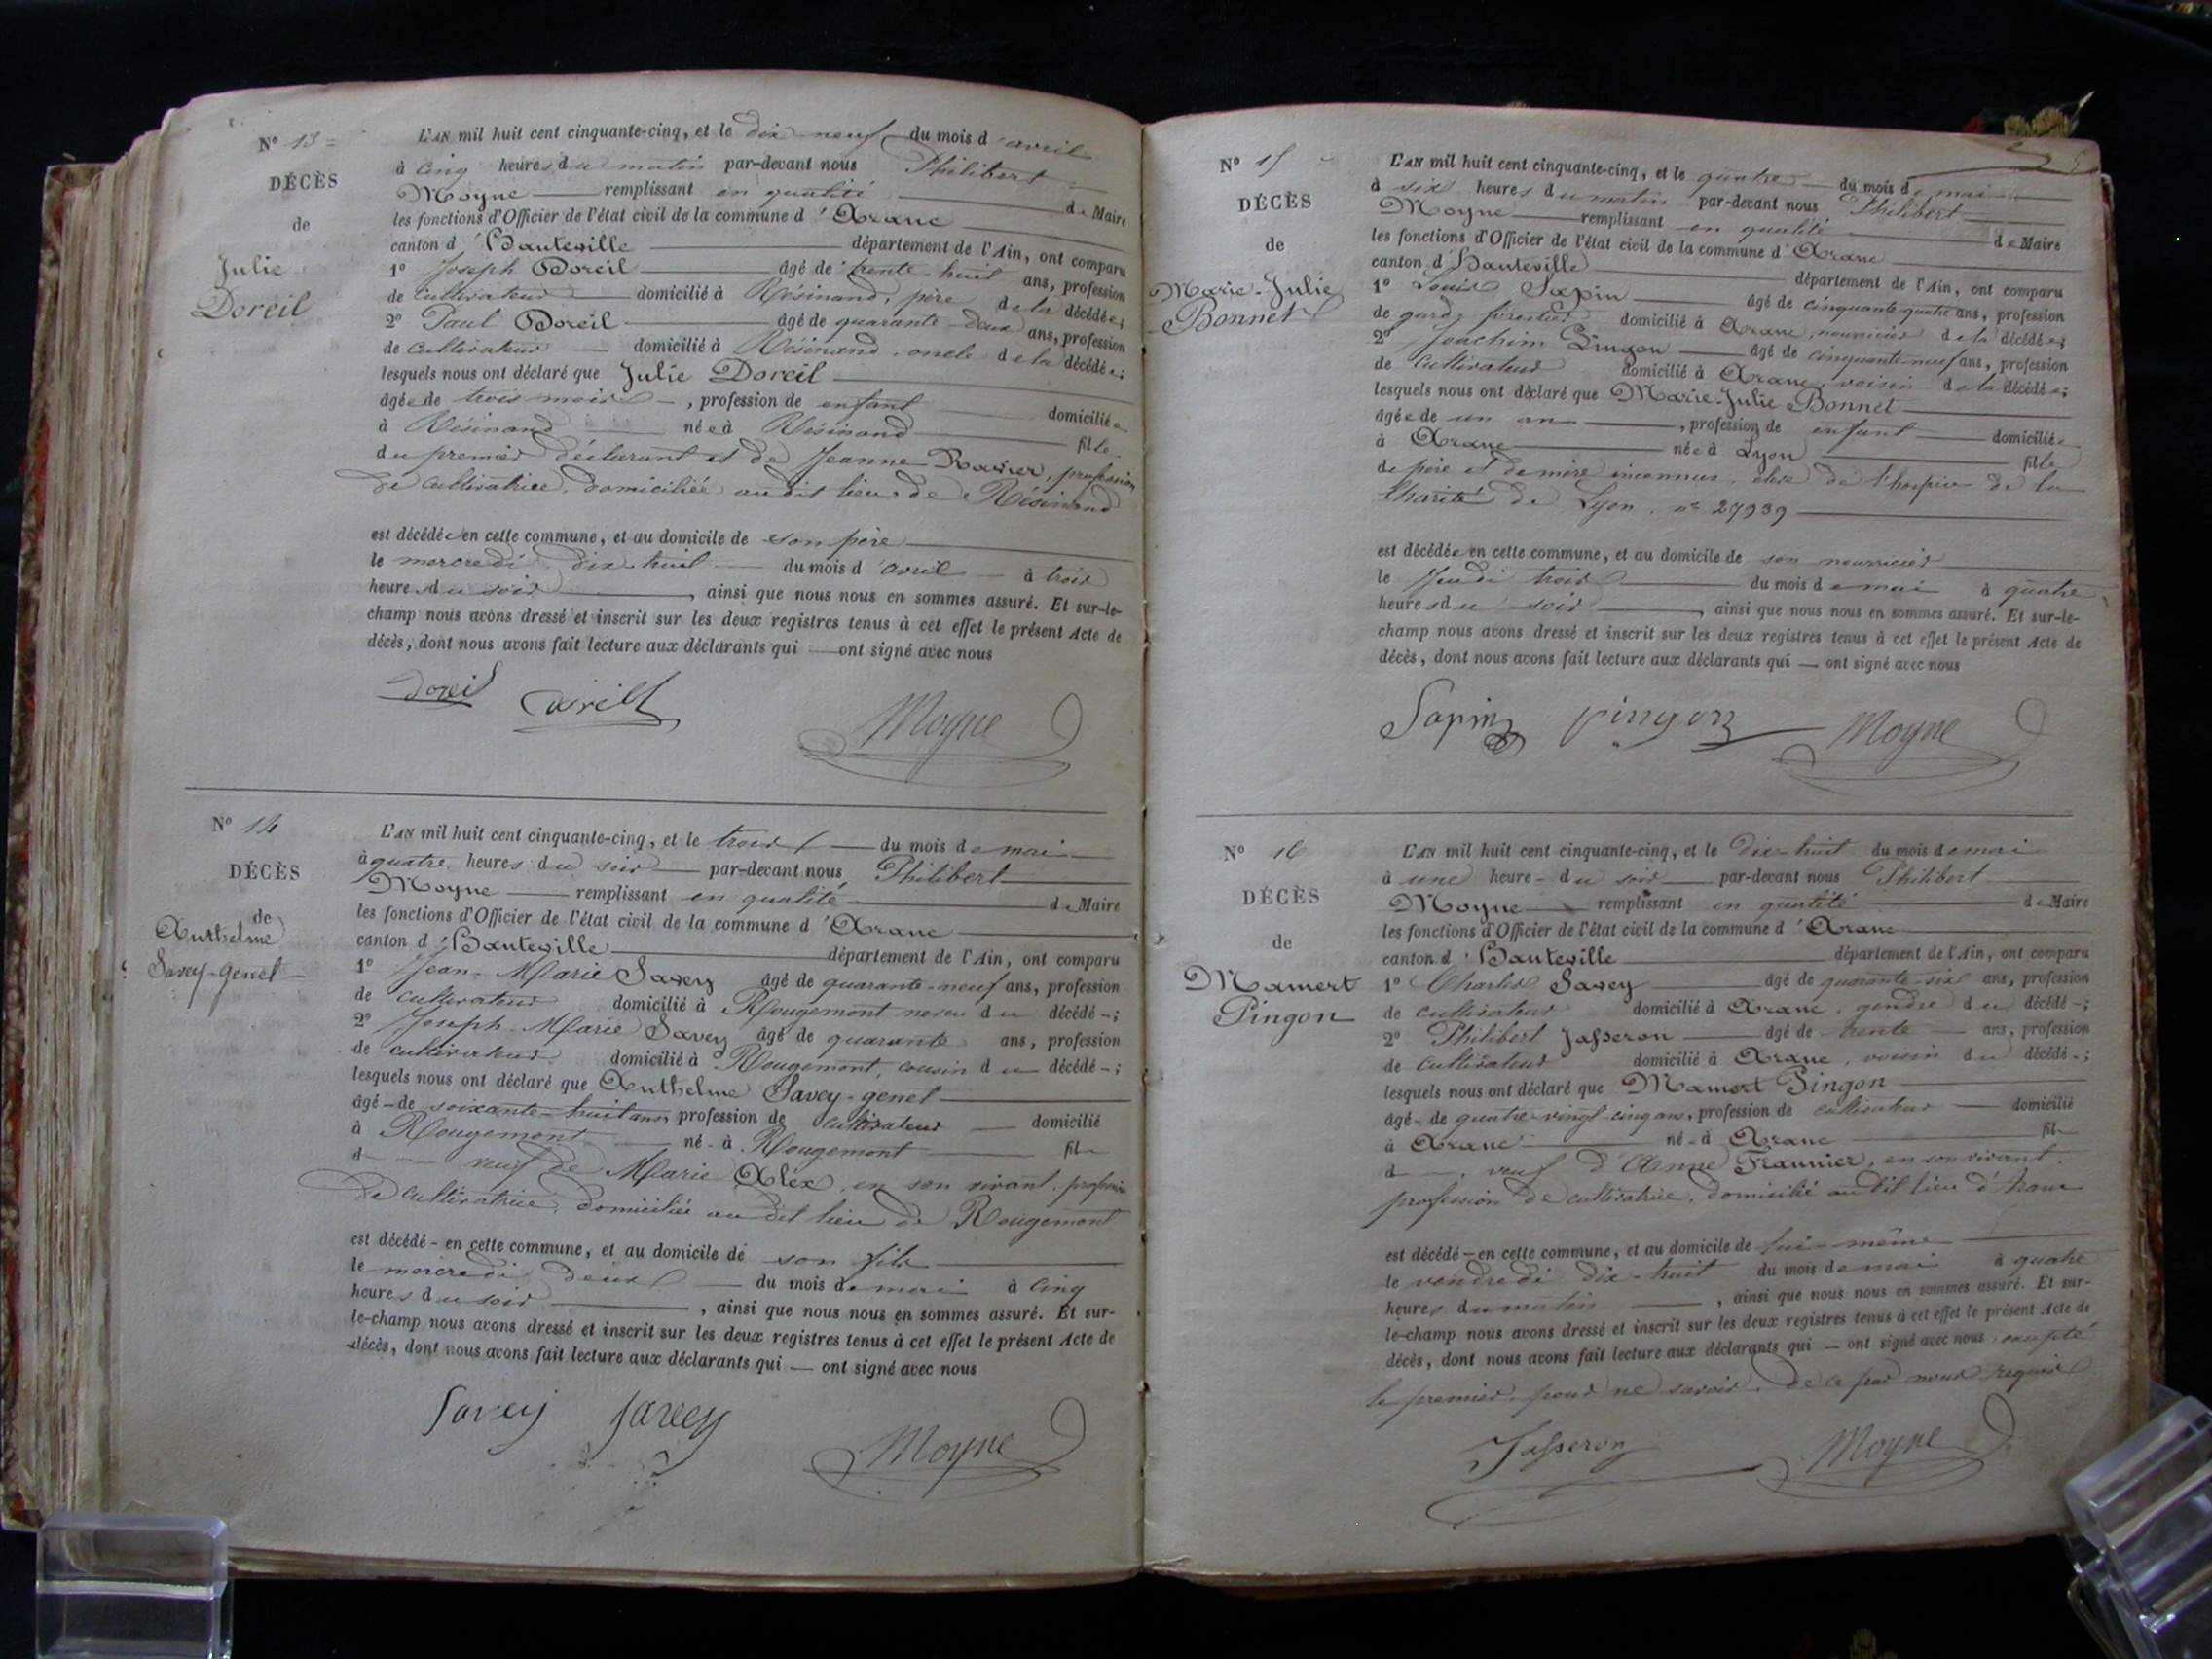 N° 13 =
DÉCÈS
de
Julie
Doreil
L'AN mil huit cent cinquante-cinq, et le dix neuf du mois d'avril
à cinq heures du matin par-devant nous Philibert
Moyne remplissant en qualité de Maire
les fonctions d'Officier de l'état civil de la commune d'Aranc
canton d'Hauteville département de l'Ain, ont comparu
1° Joseph Doreil âgé de trente-huit ans, profession
de cultivateur domicilié à Résinand, père de la décédée;
2° Paul Doreil âgé de quarante-deux ans, profession
de cultivateur domicilié à Résinand, oncle de la décédée;
lesquels nous ont déclaré que Julie Doreil
âgée de trois mois, profession de enfant domiciliée
à Résinand née à Résinand fille
du premier déclarant et de Jeanne Ravier, profession
de cultivatrice, domiciliée au dit lieu de Résinand
est décédée en cette commune, et au domicile de son père
le mercredi dix-huit du mois d'avril à trois
heures du soir, ainsi que nous nous en sommes assuré. Et sur-le-
champ nous avons dressé et inscrit sur les deux registres tenus à cet effet le présent Acte de
décès, dont nous avons fait lecture aux déclarants qui ont signé avec nous
Doreil Moyne
N° 14
DÉCÈS
de
Anthelme
Savey-genet
L'AN mil huit cent cinquante-cinq, et le trois du mois de mai
à quatre heures du soir par-devant nous Philibert
Moyne remplissant en qualité de Maire
les fonctions d'Officier de l'état civil de la commune d'Aranc
canton d'Hauteville département de l'Ain, ont comparu
1° Jean-Marie Savey âgé de quarante-neuf ans, profession
de cultivateur domicilié à Rougemont neveu du décédé -;
2° Joseph-Marie Savey âgé de quarante ans, profession
de cultivateur domicilié à Rougemont, cousin du décédé -;
lesquels nous ont déclaré que Anthelme Savey-genet
âgé - de soixante-huit ans, profession de cultivateur domicilié
à Rougemont né - à Rougemont fil
d veuf de Marie Aléx, en son vivant, profession
de cultivatrice, domiciliée au dit lieu de Rougemont
est décédé - en cette commune, et au domicile de son fils
le mercredi deux du mois de mai à cinq
heures du soir, ainsi que nous nous en sommes assuré. Et sur-
le-champ nous avons dressé et inscrit sur les deux registres tenus à cet effet le présent Acte de
décès, dont nous avons fait lecture aux déclarants qui ont signé avec nous
Savey Savey Moyne
N° 15
DÉCÈS
de
Marie-Julie
Bonnet
L'AN mil huit cent cinquante-cinq, et le quatre du mois de mai
à six heures du matin par-devant nous Philibert
Moyne remplissant en qualité de Maire
les fonctions d'Officier de l'état civil de la commune d'Aranc
canton d'Hauteville département de l'Ain, ont comparu
1° Louis Sapin âgé de cinquante quatre ans, profession
de garde forestier domicilié à Aranc, nourricier de la décédée;
2° Joachim Pingon âgé de cinquante-neuf ans, profession
de cultivateur domicilié à Aranc, voisin de la décédée;
lesquels nous ont déclaré que Marie-Julie Bonnet
âgée de un an, profession de enfant domiciliée
à Aranc née à Lyon fille
de père et de mère inconnus, élève de l'hospice de la
Charité de Lyon, n° 27939
est décédée en cette commune, et au domicile de son nourricier
le Jeudi trois du mois de mai à quatre
heures du soir, ainsi que nous nous en sommes assuré. Et sur-le-
champ nous avons dressé et inscrit sur les deux registres tenus à cet effet le présent Acte de
décès, dont nous avons fait lecture aux déclarants qui ont signé avec nous
Sapin pingon Moyne
N° 16
DÉCÈS
de
Mamert
Pingon
L'AN mil huit cent cinquante-cinq, et le dix-huit du mois de mai
à une heure - du soir par-devant nous Philibert
Moyne remplissant en qualité de Maire
les fonctions d'Officier de l'état civil de la commune d'Aranc
canton d'Hauteville département de l'Ain, ont comparu
1° Charles Savey âgé de quarante-six ans, profession
de cultivateur domicilié à Aranc, gendre du décédé -;
2° Philibert Jasseron âgé de trente ans, profession
de cultivateur domicilié à Aranc, voisin du décédé -;
lesquels nous ont déclaré que Mamert Pingon
âgé - de quatre-vingt-cinq ans, profession de cultivateur domicilié
à Aranc né - à Aranc fil
d, veuf d'Anne Traunier, en son vivant,
profession de cultivatrice, domicilié au dit lieu d'Aranc
est décédé - en cette commune, et au domicile de lui-même
le vendredi dix-huit du mois de mai à quatre
heures du matin, ainsi que nous nous en sommes assuré. Et sur-
le-champ nous avons dressé et inscrit sur les deux registres tenus à cet effet le présent Acte de
décès, dont nous avons fait lecture aux déclarants qui ont signé avec nous, excepté
le premier, pour ne savoir, de ce par nous requis
Jasseron Moyne